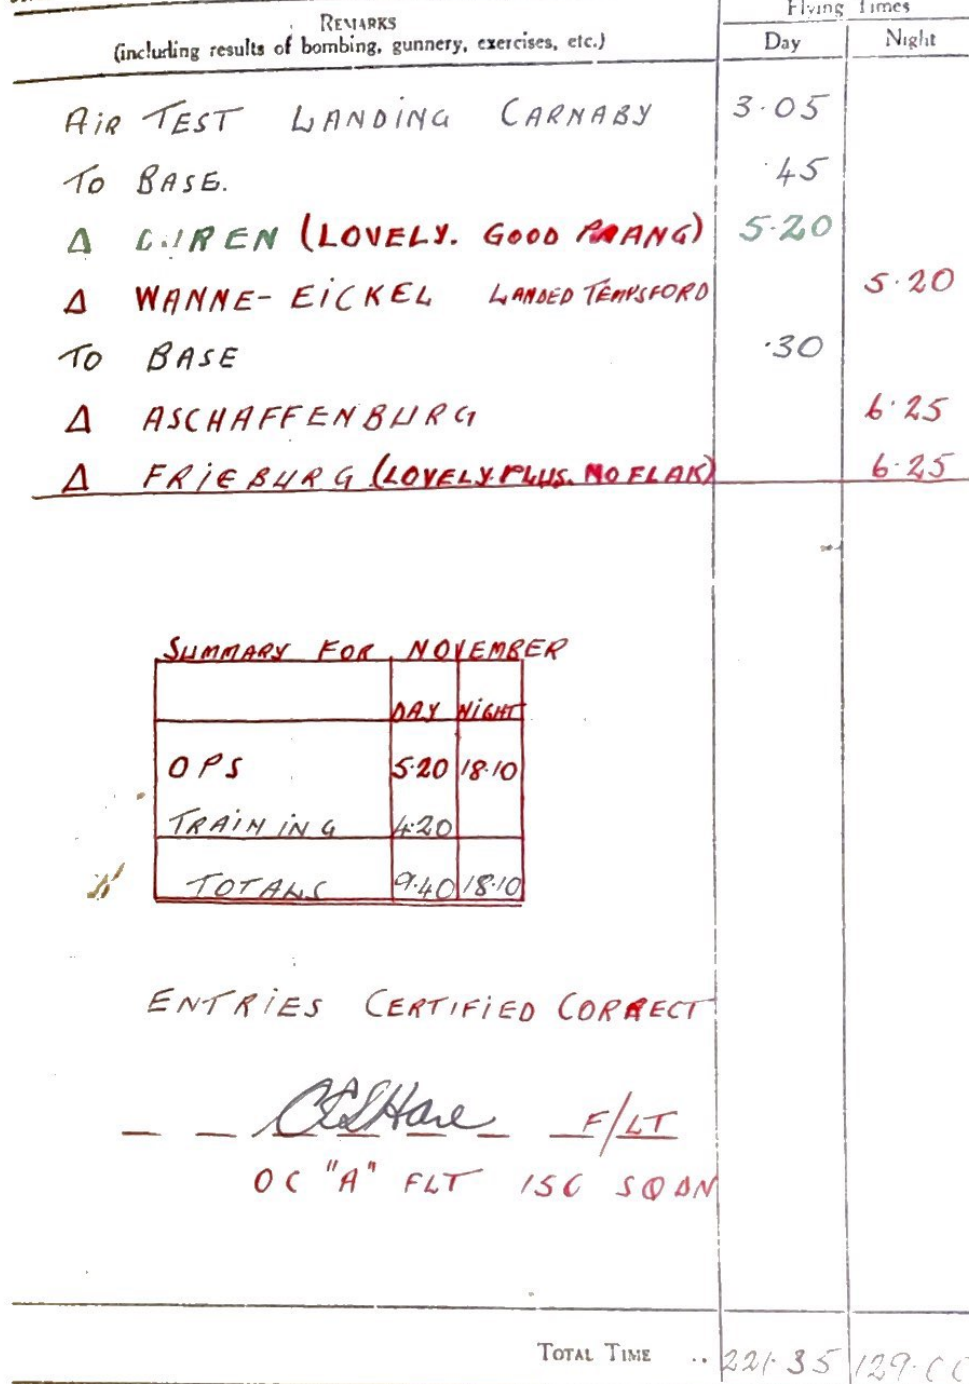 REMARKS
(including results of bombing, gunnery, exercises, etc.)
Flying Times
Day Night
AiR TEST LANDiNG CARNABY 3·05
To BASE. ·45
Δ DUREN (LOVELY. GOOD PRANG) 5·20
Δ WANNE-EiCKEL LANDED TEMPSFORD 5·20
TO BASE ·30
Δ ASCHAFFENBURG 6·25
Δ FRiEBURG (LOVELY.PLUS. NO FLAK) 6·25
SUMMARY FOR NOVEMBER
DAY NiGHT
OPS 5·20 18·10
TRAiNiNG 4·20
TOTALS 9·40 18·10
ENTRiES CERTiFiED CORRECT
F/LT
OC "A" FLT 156 SQDN
TOTAL TIME .. 221·35 129·00